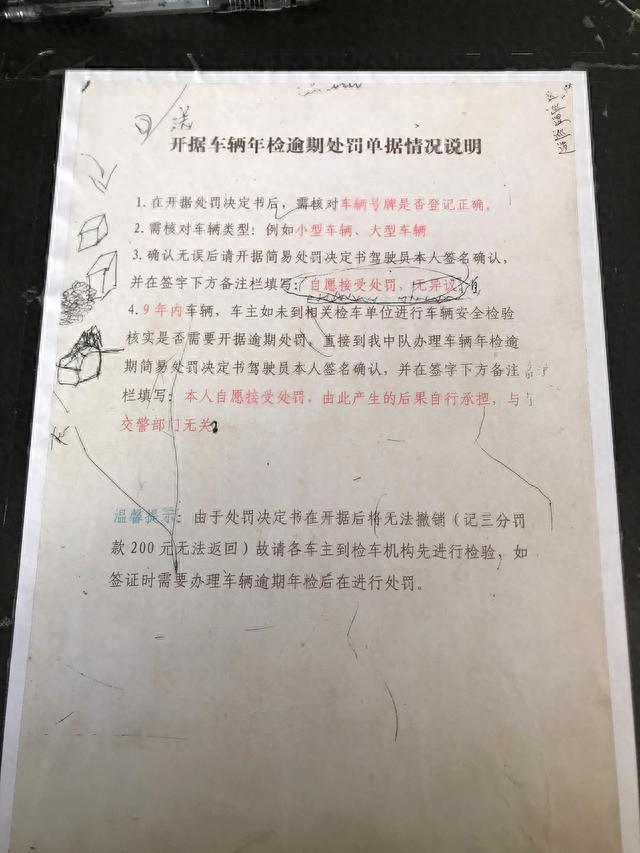 送
开据车辆年检逾期处罚单据情况说明
1.在开据处罚决定书后，需核对车辆号牌是否登记正确。
2.需核对车辆类型：例如小型车辆、大型车辆
3.确认无误后请开据简易处罚决定书驾驶员本人签名确认，
并在签字下方备注栏填写：自愿接受处罚，无异议。
4.9年内车辆，车主如未到相关检车单位进行车辆安全检验
核实是否需要开据逾期处罚，直接到我中队办理车辆年检逾
期简易处罚决定书驾驶员本人签名确认，并在签字下方备注
栏填写：本人自愿接受处罚，由此产生的后果自行承担，与
交警部门无关
温馨提示：由于处罚决定书在开据后将无法撤销（记三分罚
款200元无法返回）故请各车主到检车机构先进行检验，如
签证时需要办理车辆逾期年检后在进行处罚。